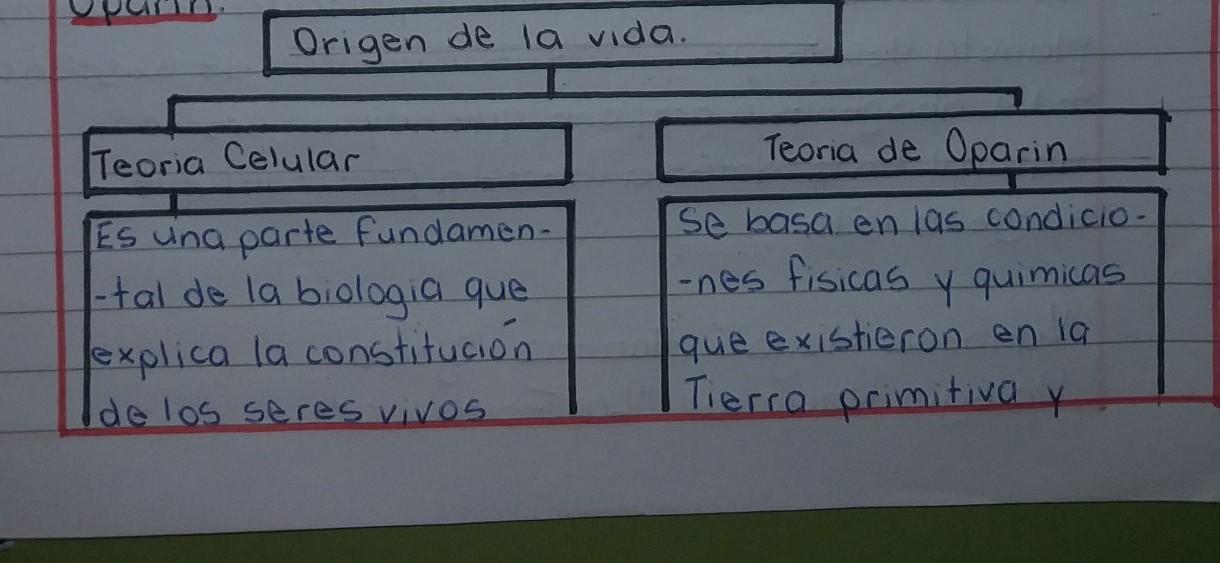 Oparin.
Origen de la vida.
Teoria Celular
Teoria de Oparin
Es una parte fundamen-
-tal de la biologia que
explica la constitución
de los seres vivos
Se basa en las condicio-
-nes fisicas y quimicas
que existieron en la
Tierra primitiva y